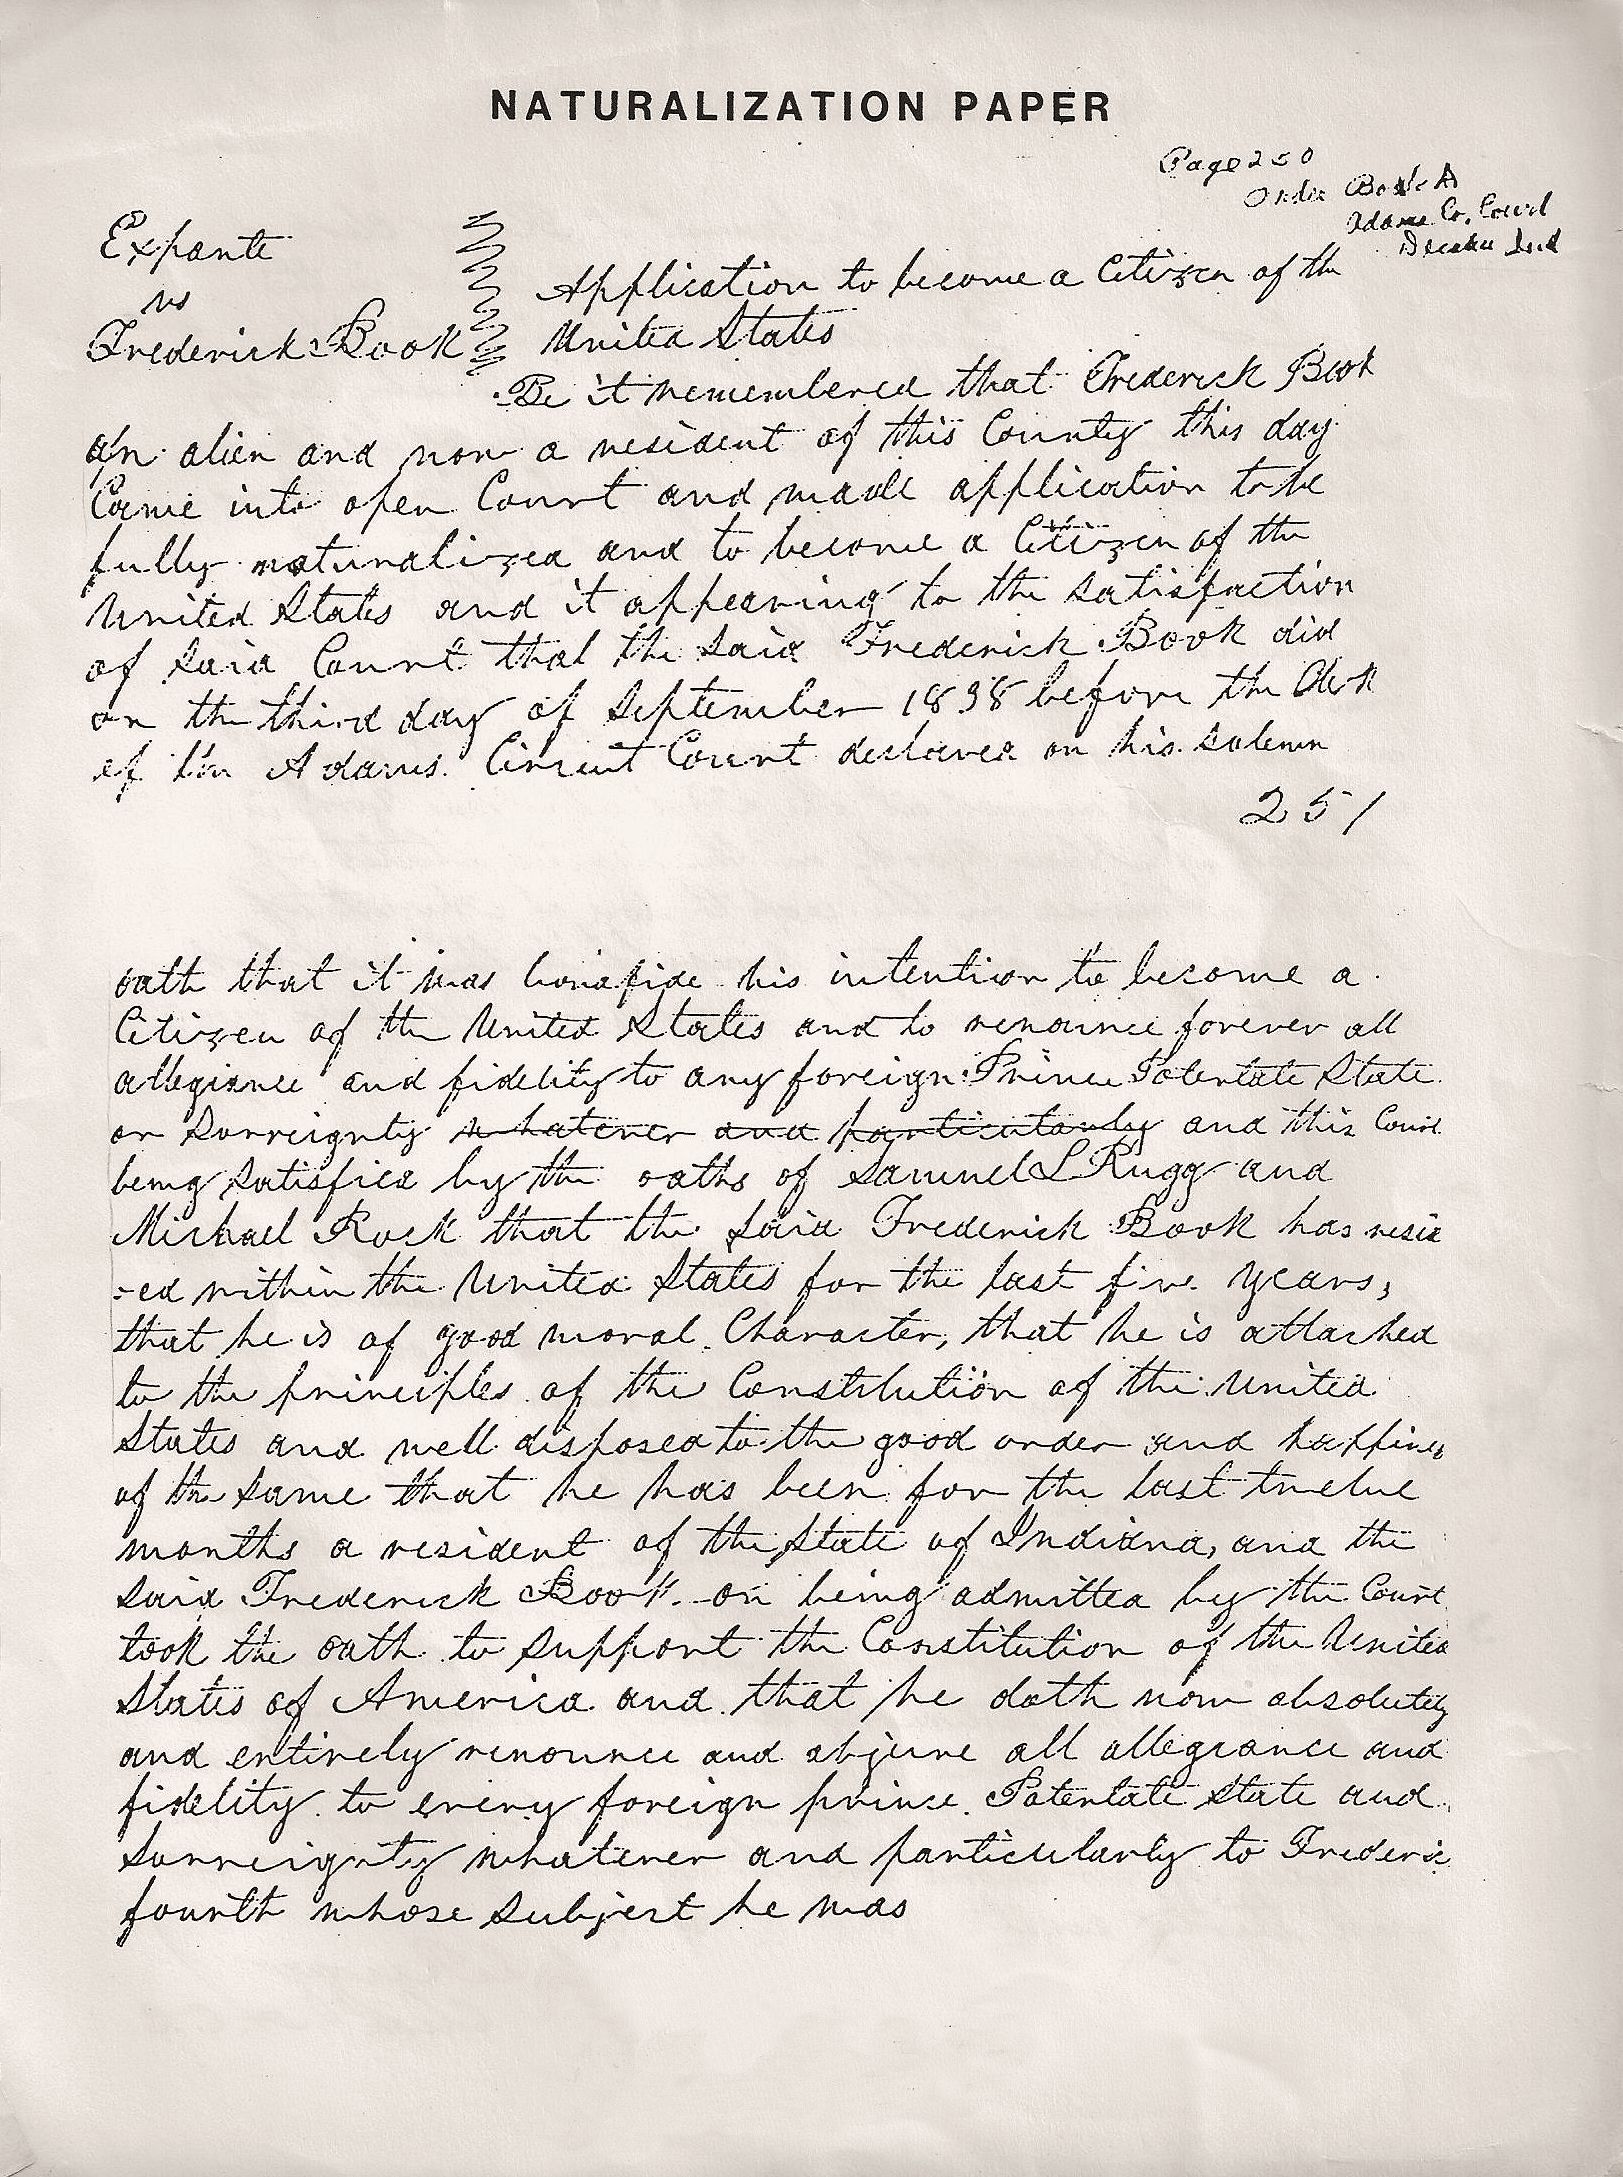 NATURALIZATION PAPER
Page 250
Order Book A
Adams Co. Court
Decatur Ind
Exparte
vs
Frederick Book
Application to become a Citizen of the
United States
Be it remembered that Frederick Book
an alien and now a resident of this County this day
Came into open Court and made application to be
fully naturalized and to become a Citizen of the
United States and it appearing to the satisfaction
of said Court that the said Frederick Book did
on the third day of September 1838 before the Clerk
of the Adams Circuit Court declared on his solemn
251
oath that it was bonafide his intention to become a
Citizen of the United States and to renounce forever all
allegiance and fidelity to any foreign Prince Potentate State
or Sovreignty whatever and particularly and this Court
being satisfied by the oaths of Samuel L Rugg and
Michael Rock that the said Frederick Book has resid
-ed within the United States for the last five years,
that he is of good moral Character, that he is attached
to the principles of the Constitution of the United
States and well disposed to the good order and happiness
of the same that he has been for the last twelve
months a resident of the State of Indiana, and the
said Frederick Book on being admitted by the Court
took the oath to support the Constitution of the United
States of America and that he doth now absolutely
and entirely renounce and abjure all allegiance and
fidelity to every foreign prince Potentate State and
Sovreignty whatever and particularly to Frederic
fourth whose subject he was